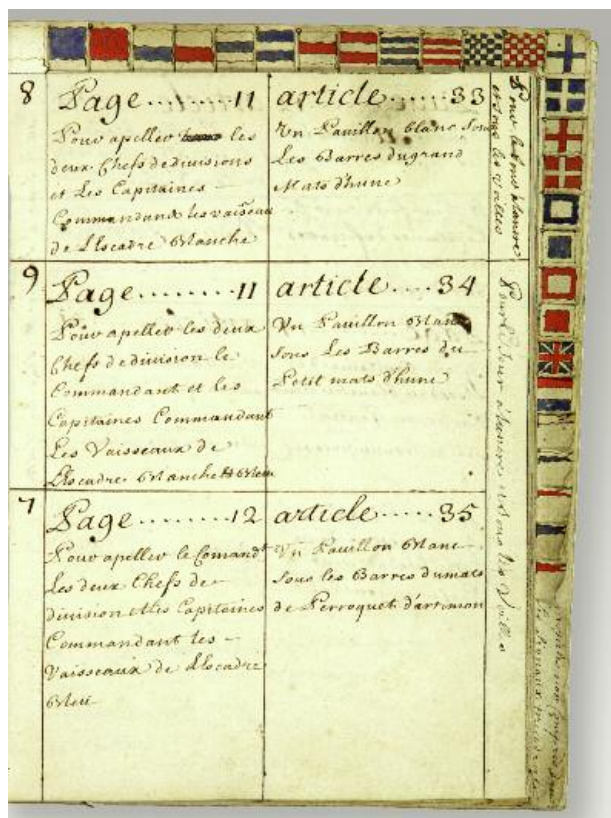 8
Page........11
Pour apeller les
deux Chefs de divisions
et Les Capitaines —
Commandant les vaisseau
de L'Escadre Blanche
article.....33
Un Pavillon blanc sous
Les Barres du grand
Mats d'hune
9
Page........11
Pour apeller les deux
Chefs de division le
Commandant et les
Capitaines Commandant
Les Vaisseaux de
L'Escadre Blanche et Bleu
article....34
Un Pavillon Blanc
sous Les Barres du
Petit mats d'hune
7
Page........12
Pour apeller le Comandt
Les deux Chefs de
division et les Capitaines
Commandant les —
Vaisseaux de L'Escadre
Bleu
article.....35
Un Pavillon Blanc
sous les Barres du mats
de Perroquet d'artimon
Pour le Jour a l'ancre
et sous les Voilles
Pour le Jour a l'ancre et sous les Voilles